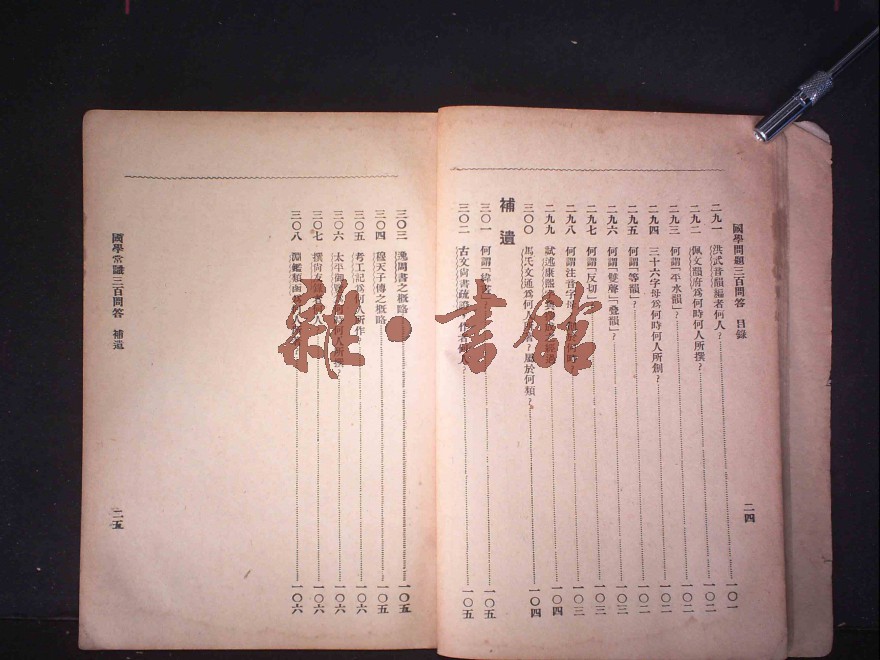 國學問題三百問答 目錄
二九一 洪武音韻編者何人？ 一〇一
二九二 佩文韻府爲何時何人所撰？ 一〇二
二九三 何謂「平水韻」？ 一〇二
二九四 三十六字母爲何時何人所創？ 一〇二
二九五 何謂「等韻」？ 一〇二
二九六 何謂「雙聲」「叠韻」？ 一〇三
二九七 何謂「反切」 一〇三
二九八 何謂注音字母 一〇三
二九九 試述康熙 一〇四
三〇〇 馬氏文通爲何人 屬於何類？ 一〇四
補遺
三〇一 何謂「緯 一〇五
三〇二 古文尚書疏證 作者何人？ 一〇五
二四
三〇三 逸周書之概略 一〇五
三〇四 穆天子傳之概略 一〇五
三〇五 考工記爲何人所作 一〇六
三〇六 太平御 何人所撰？ 一〇六
三〇七 撰尚友 一〇六
三〇八 淵鑑類函 一〇六
國學常識三百問答 補遺
二五
雜·書館